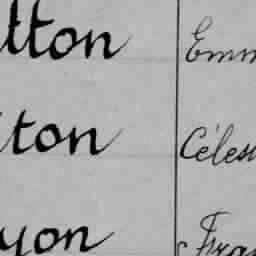 tton Emm
tton Céles
yon Fra